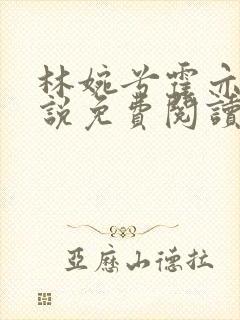 林婉兮霍亦
說免費閱讀
亞歷山德拉